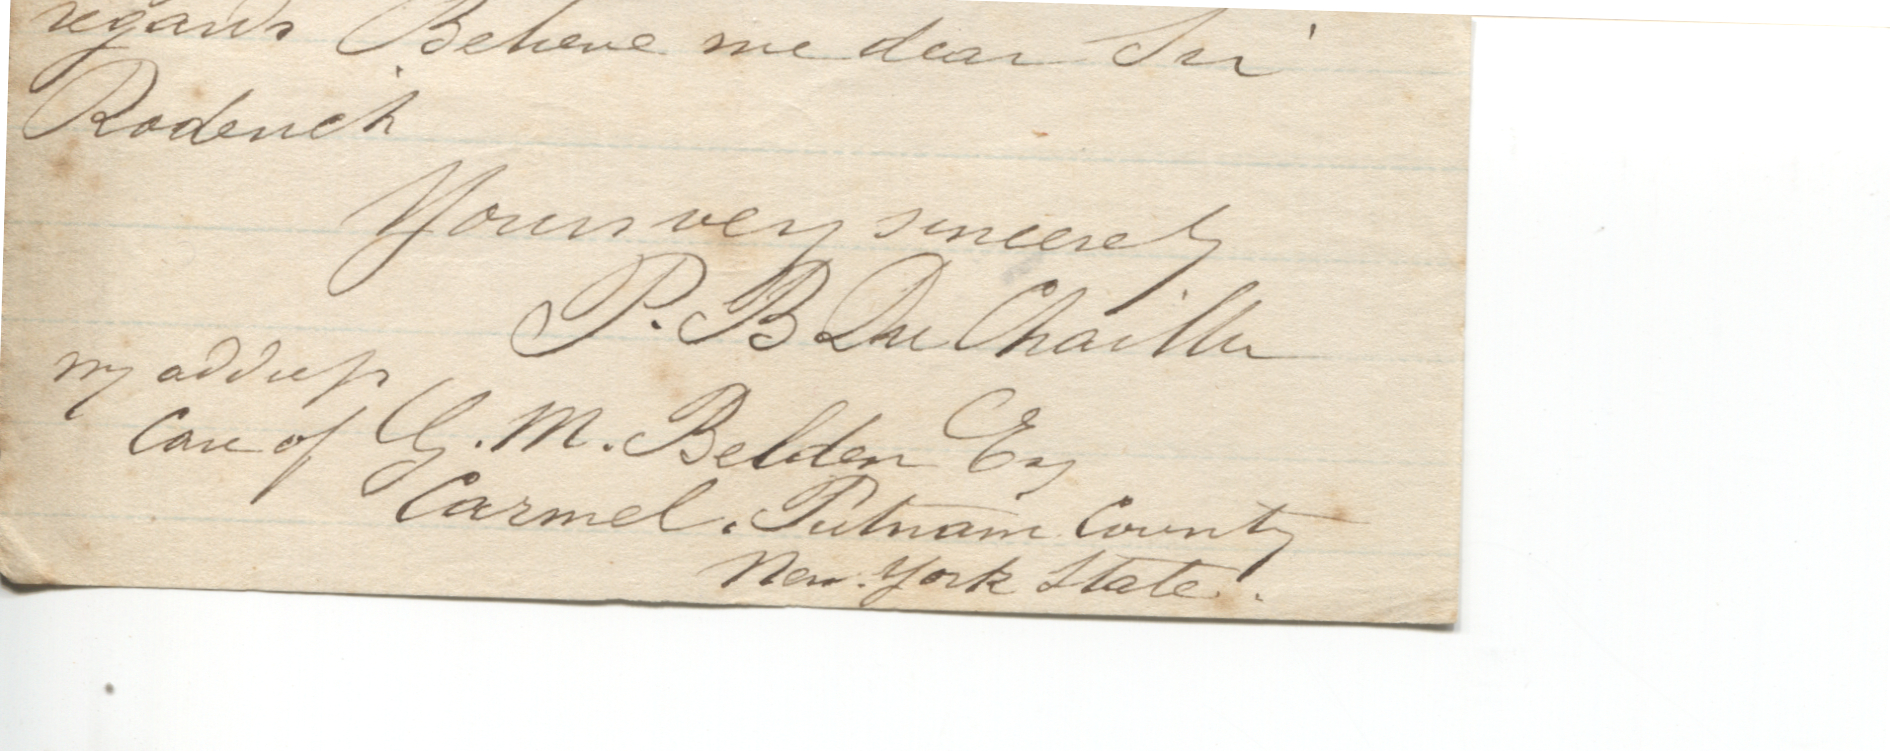 regards Believe me dear Sir
Roderick
Yours very sincerely
P. B Du Chaillu
my address
Care of G. M. Belden Esq
Carmel. Putnam County
New York State.